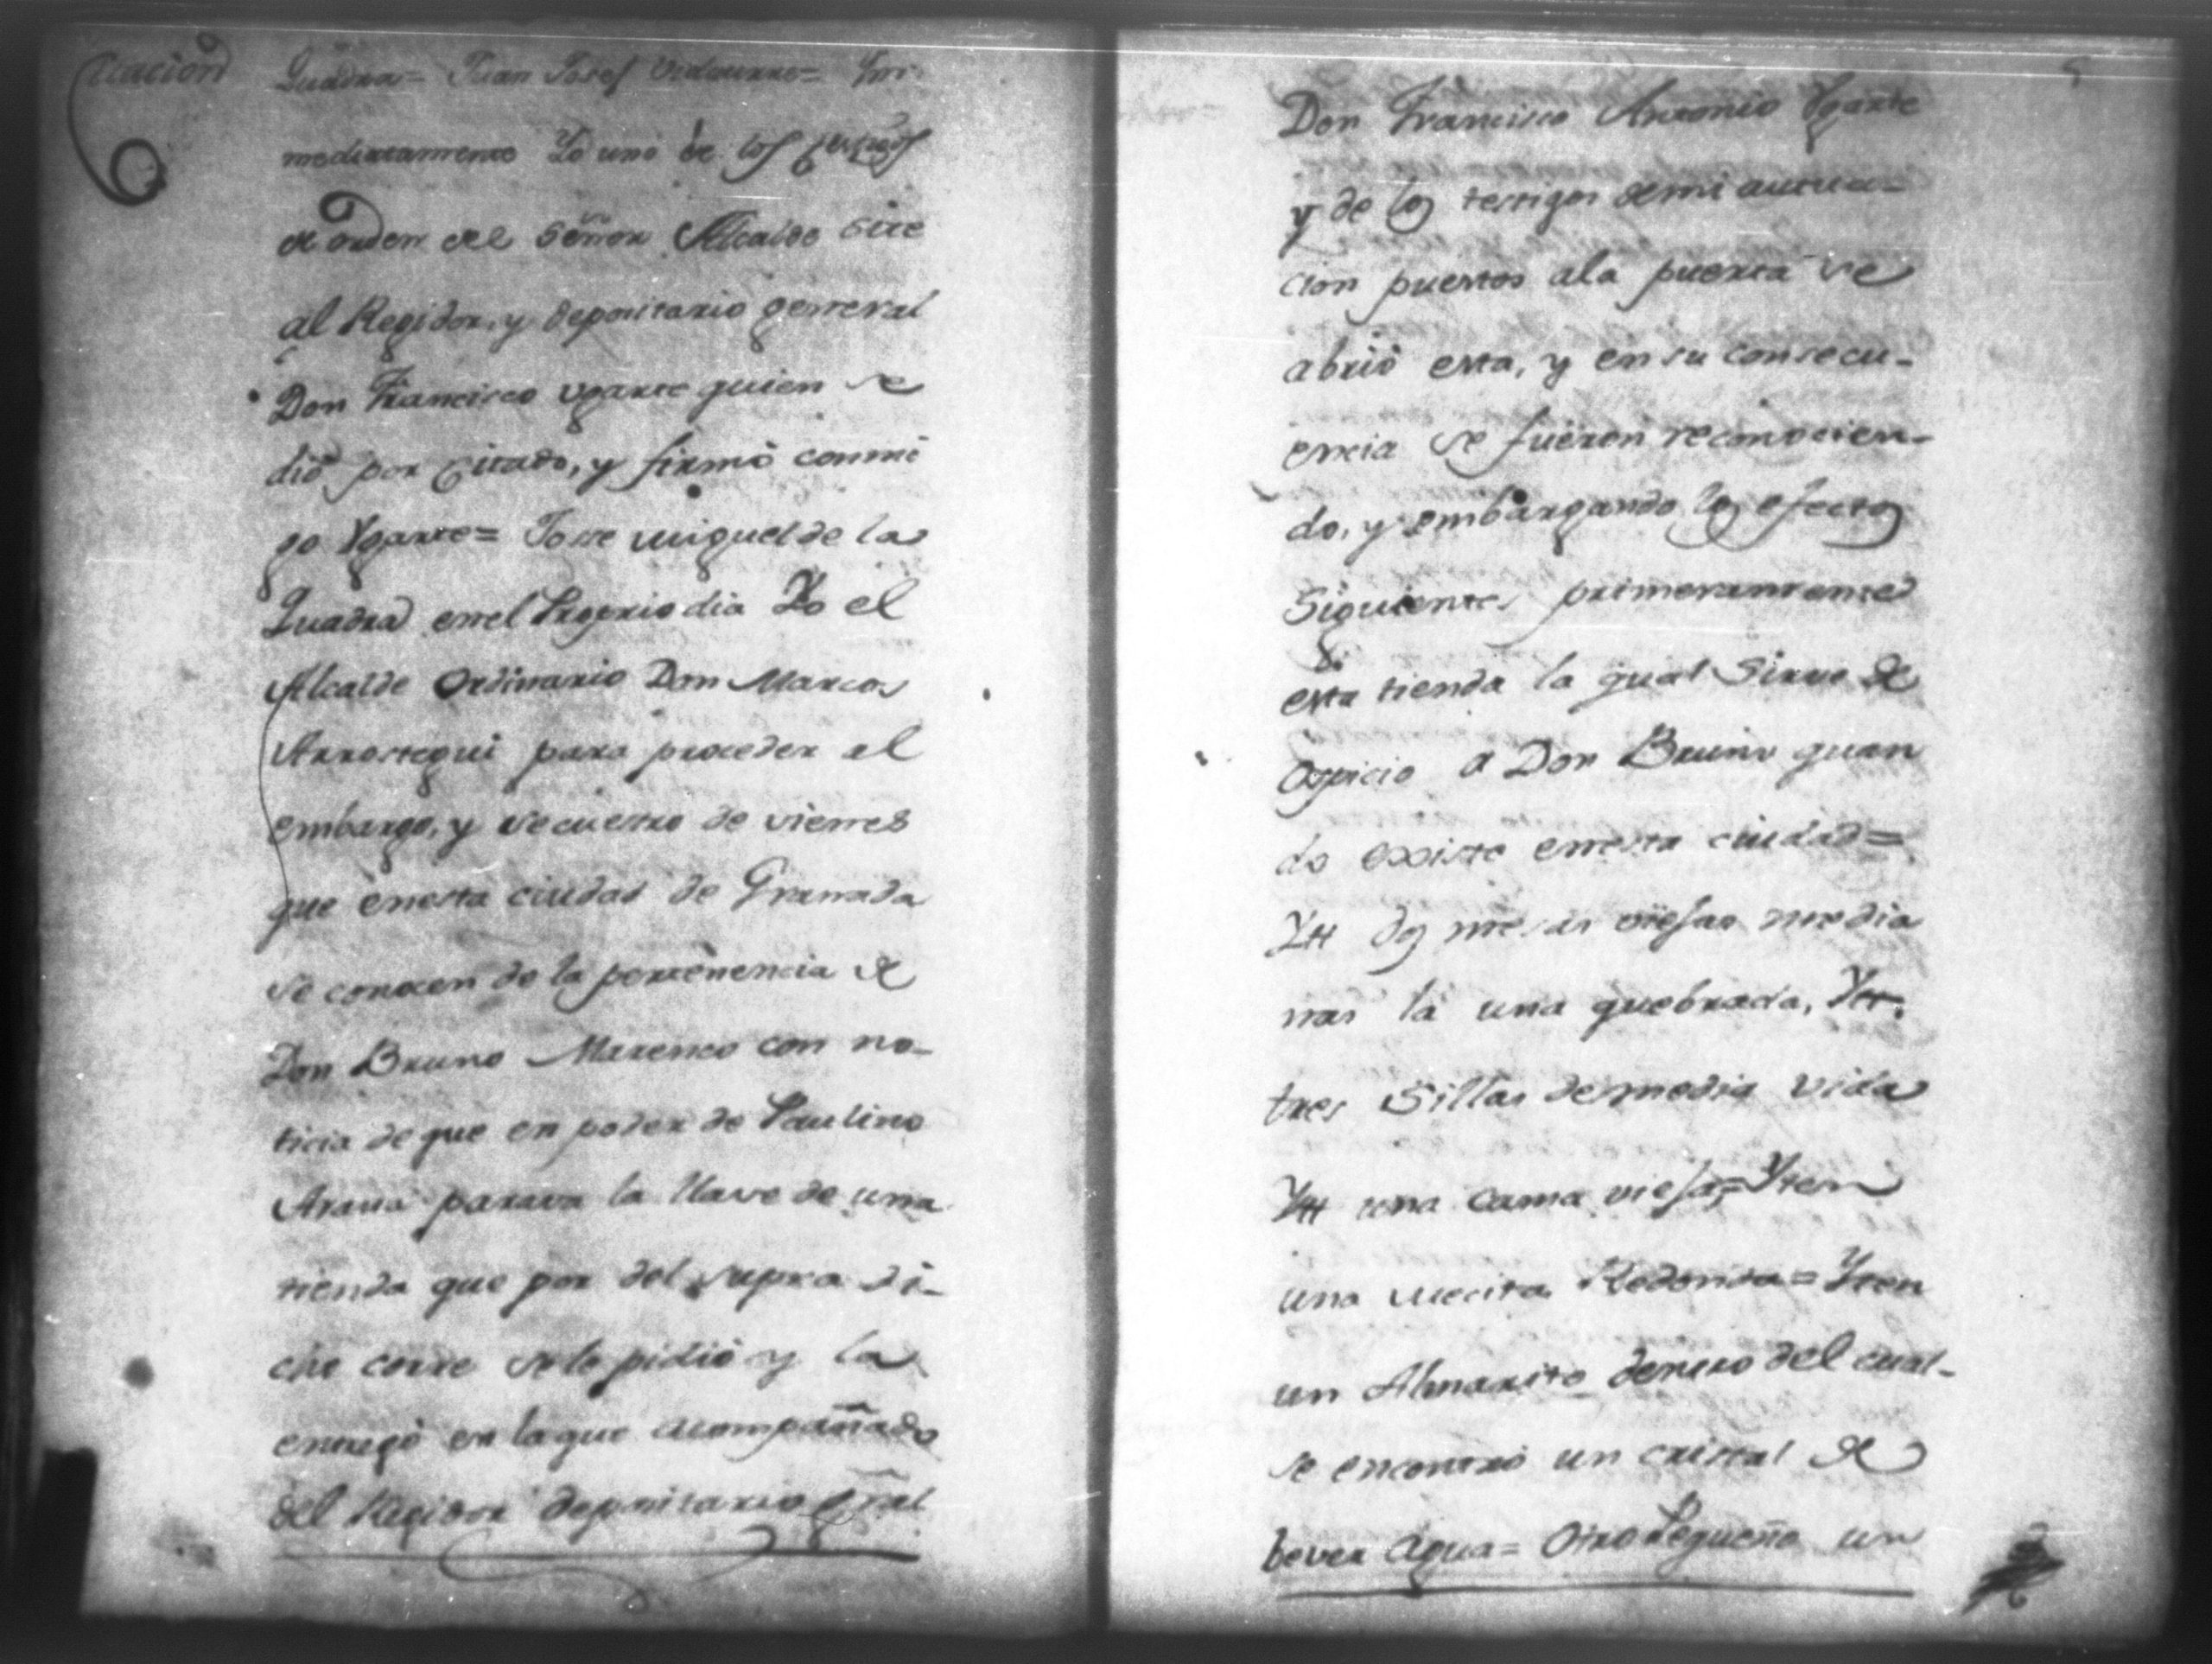 Citacion
Quadra= Juan Josef Vidaurre= Ym-
mediatamente Yo uno de los
de orden del Señor Alcalde cite
al Regidor, y depocitario general
Don Francisco Ugarte quien se
dió por citado, y firmó conmi
go Ygarte= Jose Miguel de la
Quadra enel Proprio dia Yo el
Alcalde Ordinario Don Marcos
Arrostegui para proceder al
embargo, y secuestro de vienes
que enesta ciudad de Granada
se conocen de la pertenencia de
Don Bruno Marenco con no-
ticia de que en poder de Paulino
Arana parava la llave de una
tienda que por del supra di-
cho corre se le pidió y la
entregó en la que acompañado
del Regidor depocitario gral
5
Don Francisco Antonio Ygarte
y de los testigos de mi actua-
cion puestos ala puerta se
abrió esta, y en su consecu-
encia se fueron reconocien-
do, y embargando los efectos
Siguientes primeramente
esta tienda la qual Sirve de
Ospicio a Don Bruno quan
do existe enesta ciudad=
Ytt dos mesas viejas media
nas la una quebrada, Ytt.
tres Sillas de media vida
Ytt una cama vieja= Yten
una mecita Redonda= Yten
un Almarito dentro del cual-
se encontró un cristal de
bever Agua= Otro Pequeño un